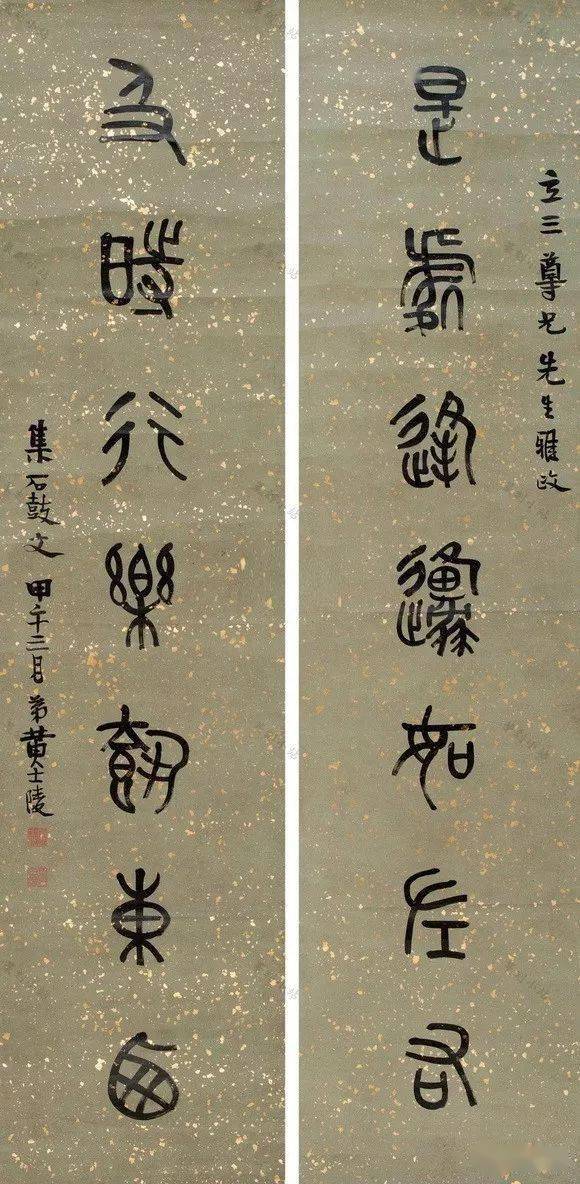 立三尊兄先生雅政
是處逢邍如左右
及時行樂東西
集石鼓文 甲午三月弟黄士陵